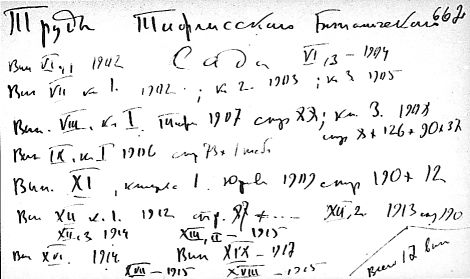 Труды Тифлисского Ботанического 662
Сада
Вып VI,1 1902 VI,3 – 1904
Вып VII к 1. 1902. ; к 2. 1903 ; к 3 1905
Вып. VIII. к. I Тифл 1907 стр XX; кн. 3.
стр X + 126 + 90 + 37
Вып IX, к. I 1906 стр 73 + 1 табл
Вып. XI, книга 1. Юрьев 1909 стр 190 + 12
Вып XII к. 1. 1912 стр. XII,2. 1913 стр 190
XII,3 1914 XIII, – 1915
Вып XVI. 1914 Вып XIX – 1917
XVII – 1915 XVIII – 1915
Всего 12 вып